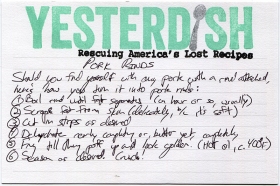 YESTERDISH
Rescuing America's Lost Recipes
PORK RINDS
Should you find yourself with any pork with a rind attached,
here's how you turn it into pork rinds:
① Boil rind until fat separates (an hour or so, usually)
② Scrape fat from skin (delicately, b/c it's soft)
③ Cut in strips as desired
④ Dehydrate nearly completely or, better yet, completely
⑤ Fry till they puff up and look golden. (Hot oil, c. 400°F)
⑥ Season as desired. Crunch!